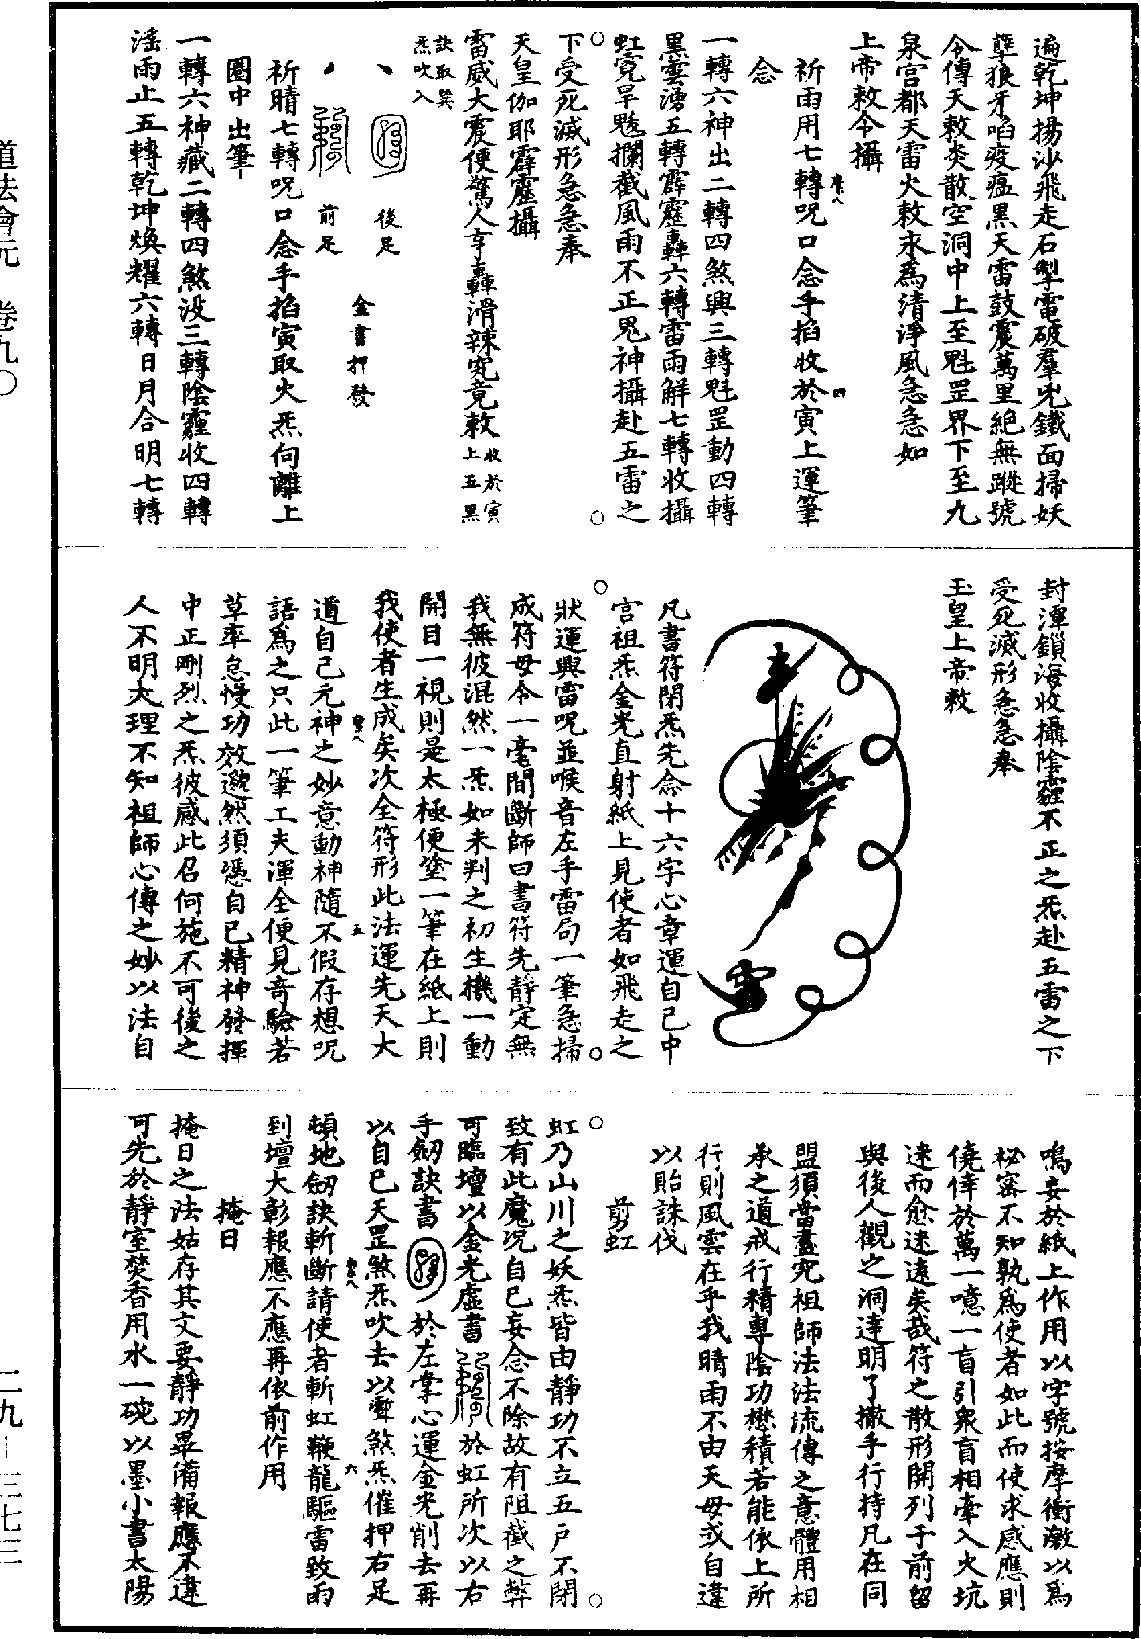 遍乾坤揚沙飛走石掣電破羣兇鐵面掃妖
孽狼牙啗疫瘟黑天雷鼓震萬里絕無蹤號
令傳天敕炎散空洞中上至魁罡界下至九
泉宮都天雷火敕永為清淨風急急如
上帝敕令攝
祈雨用七轉呪口念手掐收於寅上運筆
念
一轉六神出二轉四煞興三轉魁罡動四轉
黑雲湧五轉霹靂轟六轉雷雨解七轉收攝
虹霓旱魃攔截風雨不正鬼神攝赴五雷之
下受死滅形急急奉
天皇伽耶霹靂攝
雷威大震便驚人亨轟滑辣究竟敕收於寅上五黑
訣取巽炁吹入
後足
前足
金書押發
祈晴七轉呪口念手掐寅取火炁向離上
圈中出筆
一轉六神藏二轉四煞没三轉陰霾收四轉
滛雨止五轉乾坤煥耀六轉日月合明七轉
封潭鎖海收攝陰霾不正之炁赴五雷之下
受死滅形急急奉
玉皇上帝敕
雷
凡書符閉炁先念十六字心章運自己中
宮祖炁金光直射紙上見使者如飛走之
狀運興雷呪並喉音左手雷局一筆急掃
成符毋令一毫間斷師曰書符先靜定無
我無彼混然一炁如未判之初生機一動
開目一視則是太極便塗一筆在紙上則
我使者生成矣次全符形此法運先天大
道自己元神之妙意動神隨不假存想呪
語為之只此一筆工夫渾全便見奇驗若
草率怠慢功效邈然須憑自己精神發揮
中正剛烈之炁彼感此召何施不可後之
人不明大理不知祖師心傳之妙以法自
鳴妄於紙上作用以字號按摩衝激以為
秘密不知孰為使者如此而使求感應則
僥倖於萬一噫一盲引眾盲相牽入火坑
迷而愈迷遠矣哉符之散形開列于前留
與後人觀之洞達明了撒手行持凡在同
盟須當盡究祖師法法流傳之意體用相
承之道戒行精專陰功懋積若能依上所
行則風雲在乎我晴雨不由天毋或自違
以貽誅伐
剪虹
虹乃山川之妖炁皆由靜功不立五戶不閉
致有此魔况自己妄念不除故有阻截之弊
可臨壇以金光虛書於虹所次以右
手劒訣書於左掌心運金光削去再
以自己天罡煞炁吹去以霹煞炁催押右足
頓地劒訣斬斷請使者斬虹鞭龍驅雷致雨
到壇大彰報應不應再依前作用
掩日
掩日之法姑存其文要靜功畢備報應不違
可先於靜室焚香用水一碗以墨小書太陽
道法會元 卷九〇
二九-三七三